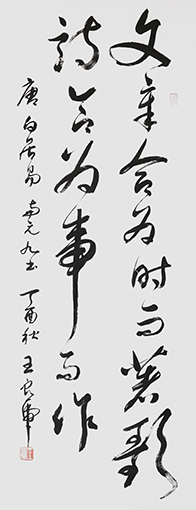 文章合为时而著歌
诗合为事而作
唐白居易与元九书 丁酉秋 王良虎